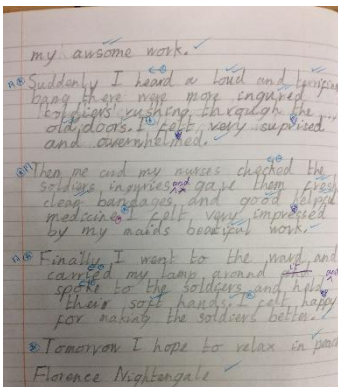 my awsome work.
Suddenly I heard a loud and terrifin
bang there were more ingured
soldiers rushing through the
old doors. I felt very suprised
and overwhelmed.
Then me and my nurses checked the
soldiers injuries and gave them fresh
clean bandages, and good helpful
medicine. I felt very impressed
by my maids beautiful work.
Finally I went to the ward and
carried my lamp around and
spoke to the soldiers and held
their soft hands. I felt happy
for making the soldiers better.
Tomorrow I hope to relax in
Florence Nightengale